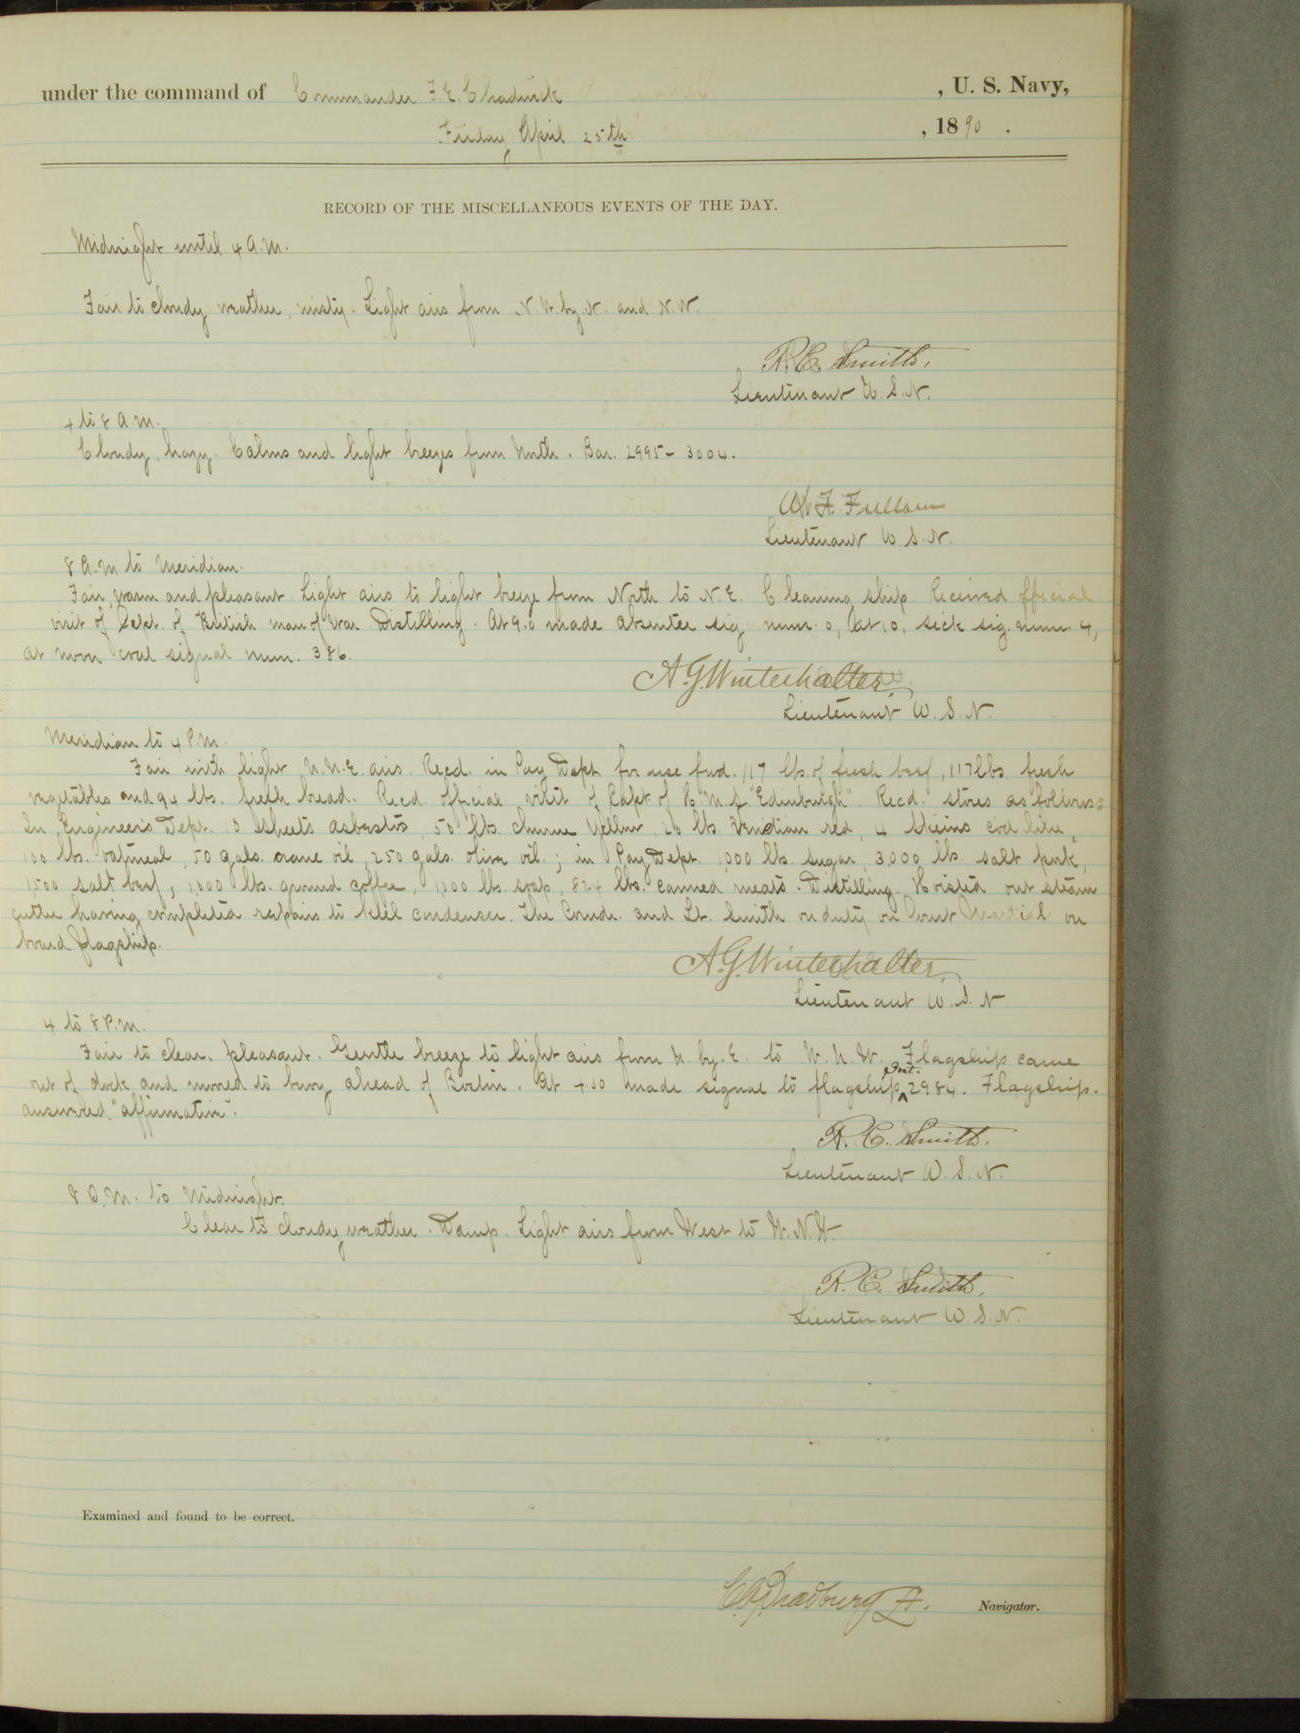 under the command of Commander F. E. Chadwick , U. S. Navy,
Friday, April 25th , 1890 .
RECORD OF THE MISCELLANEOUS EVENTS OF THE DAY.
Midnight until 4 A.M.
Fair to cloudy weather, misty. Light airs from N. W. by N. and N. W.
R. C. Smith,
Lieutenant U. S. N.
4 to 8 A.M.
Cloudy, hazy. Calms and light breezes from North. Bar. 2995 - 3004.
W. F. Fullam
Lieutenant U. S. N.
8 A.M to Meridian.
Fair, warm and pleasant. Light airs to light breeze from North to N. E. Cleaning ship. Received official
visit of Dept. of British man of War. Distilling. At 9.0 made absentee sig. num. 0, at 10, sick sig. num. 4,
at noon coal signal num. 386.
A. G. Winterhalter,
Lieutenant U. S. N.
Meridian to 4 P.M.
Fair with light N. N. E. airs. Recd. in Pay Dept. for use fwd. 117 lbs. of fresh beef, 117 lbs. fresh
vegetables and 94 lbs. fresh bread. Recd. official visit of Capt. of H. M. S. "Edinburgh" Recd. stores as follows:
In Engineer's Dept. 13 sheets asbestos, 50 lbs. chrome yellow, 28 lbs. Venetian red, 4 skeins cod line,
100 lbs. oatmeal, 50 gals. crane oil, 250 gals. olive oil; in Pay Dept. 1,000 lbs. sugar, 3,000 lbs. salt pork,
1500 salt beef, 1,000 lbs. ground coffee, 1,000 lbs. soap, 824 lbs. canned meats. Distilling. Hoisted out steam
cutter having completed repairs to keel condenser. The Comdr. and Lt. Smith on duty on Court Martial on
board flagship.
A. G. Winterhalter,
Lieutenant U. S. N
4 to 8 P.M.
Fair to clear, pleasant. Gentle breeze to light airs from N. by E. to W. N. W. Flagship came
out of dock and moved to buoy ahead of Boston. At 4.30 made signal to flagship, 2984. Flagship.
answered "affirmative".
R. C. Smith.
Lieutenant U. S. N.
8 P.M. to Midnight.
Clear to cloudy weather. Damp. Light airs from West to W. N. W.
R. C. Smith,
Lieutenant U. S. N.
Examined and found to be correct.
Navigator.